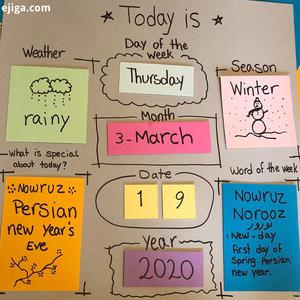 ejiga.com
Today is
Weather
rainy
Day of the
week
Thursday
Season
Winter
Month
3-March
What is special
about today?
Nowruz
Persian
new year's
Eve
Date
1 9
Year
2020
Word of the week
Nowruz
Norooz
نوروز
: New - day
First day of
Spring. Persian
new year.